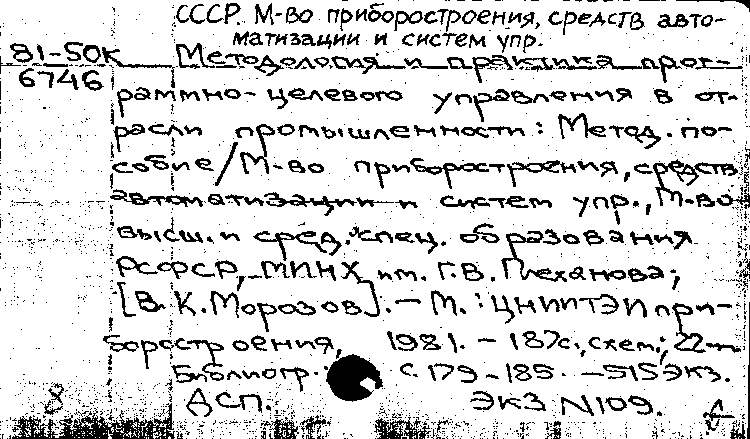 СССР. М-во приборостроения, средств авто-
матизации и систем упр.
81-50К
6746
Методология и практика прог-
раммно-целевого управления в от-
расли промышленности: Метод. по-
собие/М-во приборостроения, средств
автоматизации и систем упр., М-во
высш. и сред. спец. образования
РСФСР, МИНХ им. Г.В. Плеханова;
[В.К. Морозов]. — М.: ЦНИИТЭИпри-
боростроения, 1981. — 187с., схем.; 22
Библиогр. с. 179-185. — 515 экз.
8 ДСП. ЭКЗ N109.